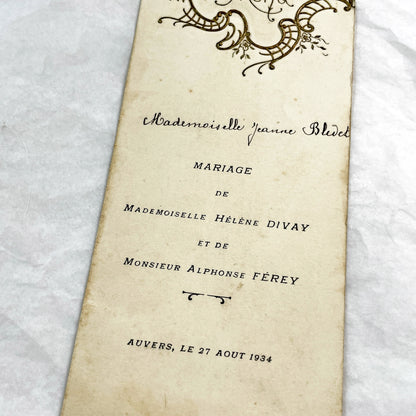 Mademoiselle Jeanne Blidet
MARIAGE
DE
MADEMOISELLE HÉLÈNE DIVAY
ET DE
MONSIEUR ALPHONSE FÉREY
AUVERS, LE 27 AOUT 1934